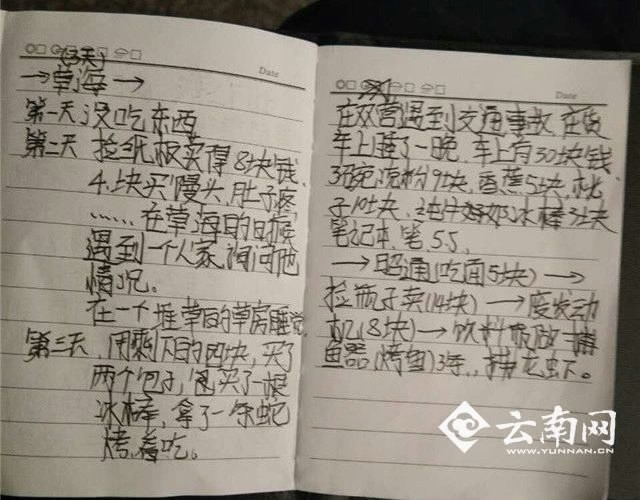 Date
→草海→
第一天没吃东西
第二天 捡纸板卖得8块钱.
4.块买馒头,肚子疼,
……在草海的时候
遇到一个人家,询问他
情况。
在一个堆草的草房睡觉.
第三天,用剩下的四块,买了
两个包子,包买了一根
冰棒,拿了一条蛇
烤着吃。
Date
在双营遇到交通事故.在货
车上睡了一晚.车上有30块钱
3碗凉粉9块,香蕉5块,桃
子10块,冰棒3块
笔记本.笔5.5.
→昭通(吃面5块)→
捡瓶子卖(14块)→废发动
机(8块)→饮料瓶做一捕
鱼器(烤鱼)3天..龙虾。
云南网
WWW.YUNNAN.CN